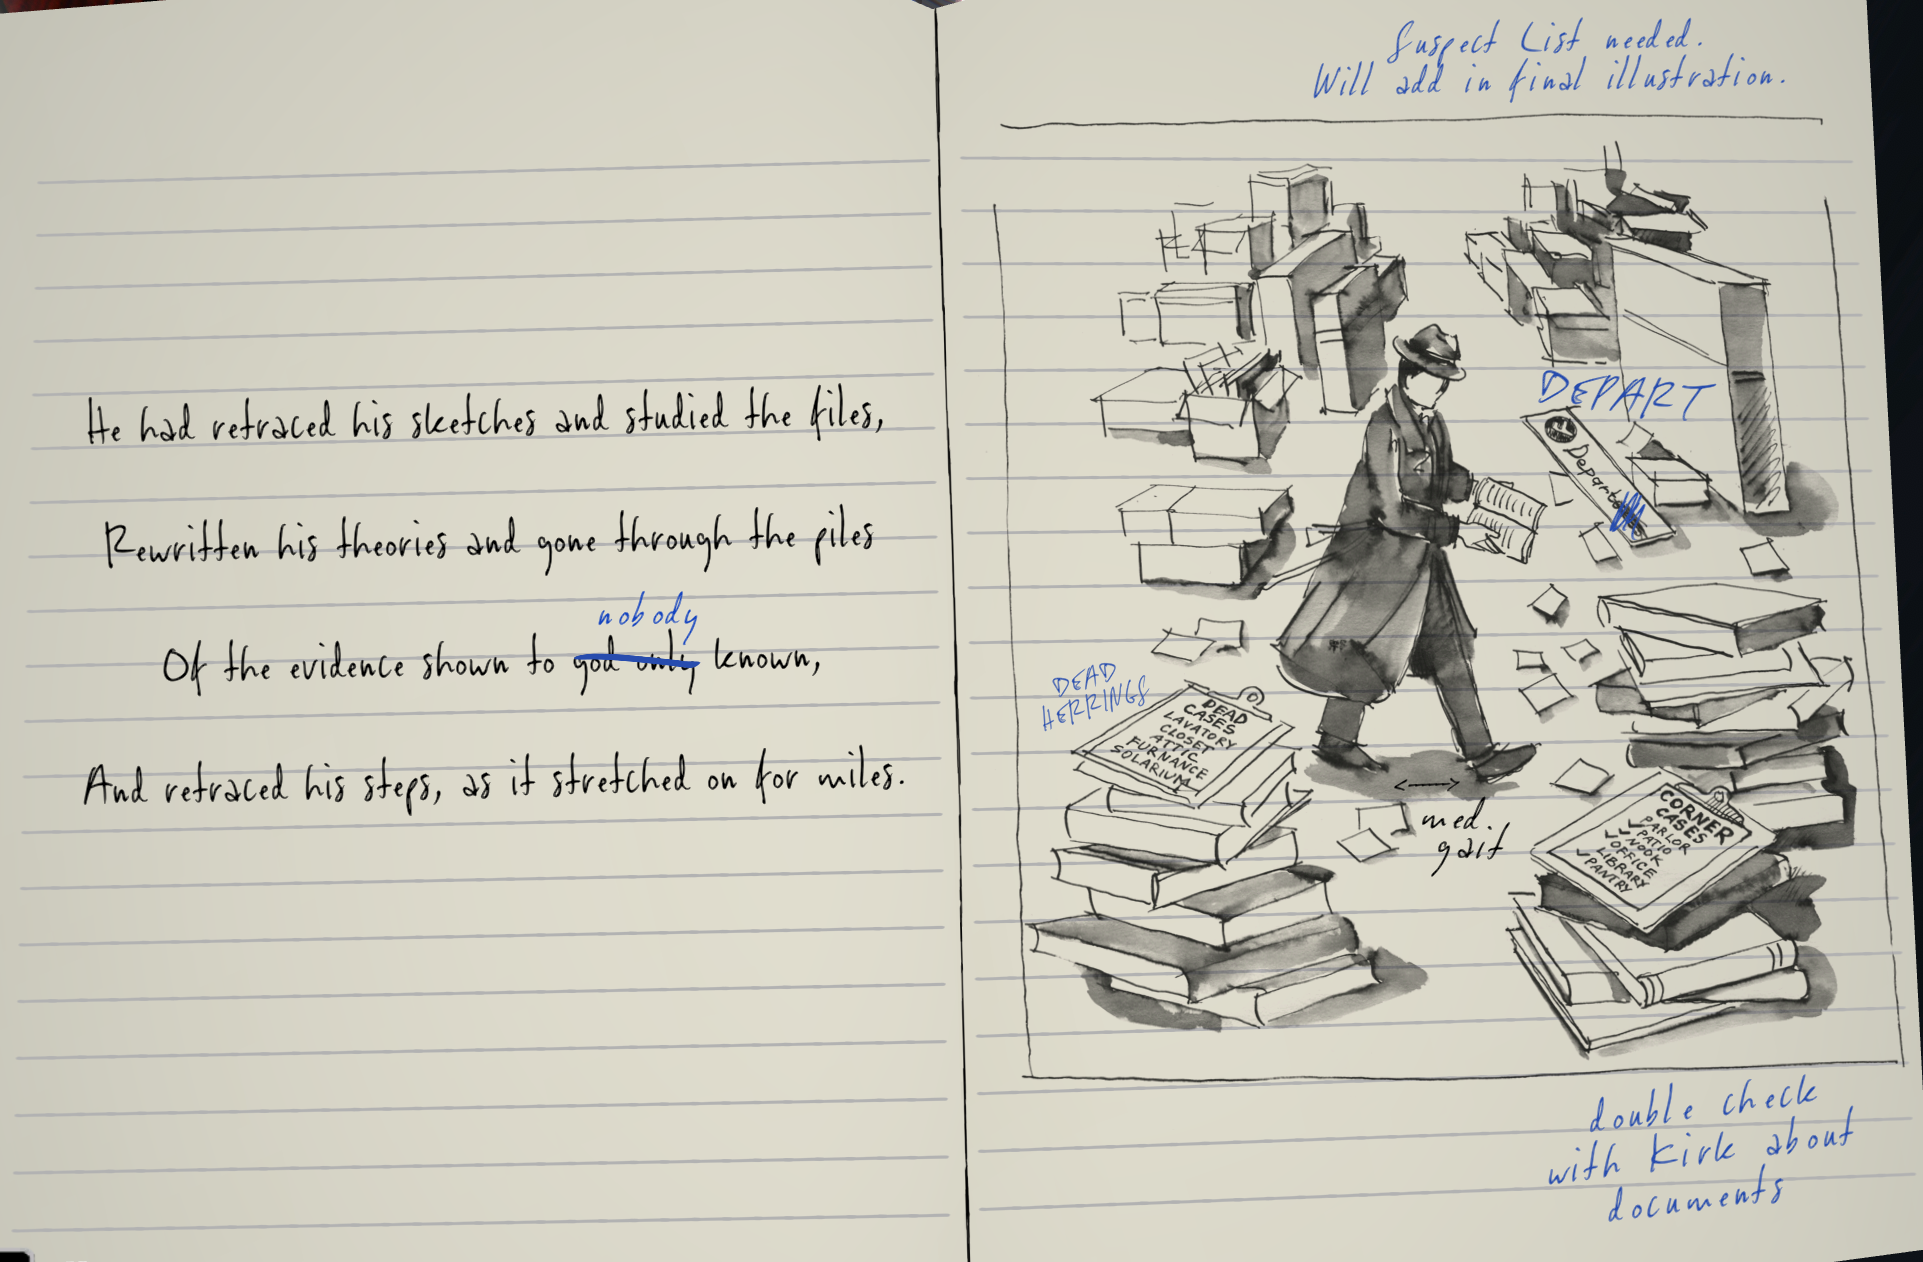 He had retraced his sketches and studied the files,
Rewritten his theories and gone through the piles
nobody
Of the evidence shown to god only known,
And retraced his steps, as it stretched on for miles.
Suspect List needed.
Will add in final illustration.
DEPART
Depart
DEAD
HERRINGS
DEAD
CASES
LAVATORY
CLOSET
ATTIC
FURNANCE
SOLARIUM
med.
gait
CORNER
CASES
✓PARLOR
✓PATIO
✓NOOK
✓OFFICE
LIBRARY
✓PANTRY
double check
with Kirk about
documents